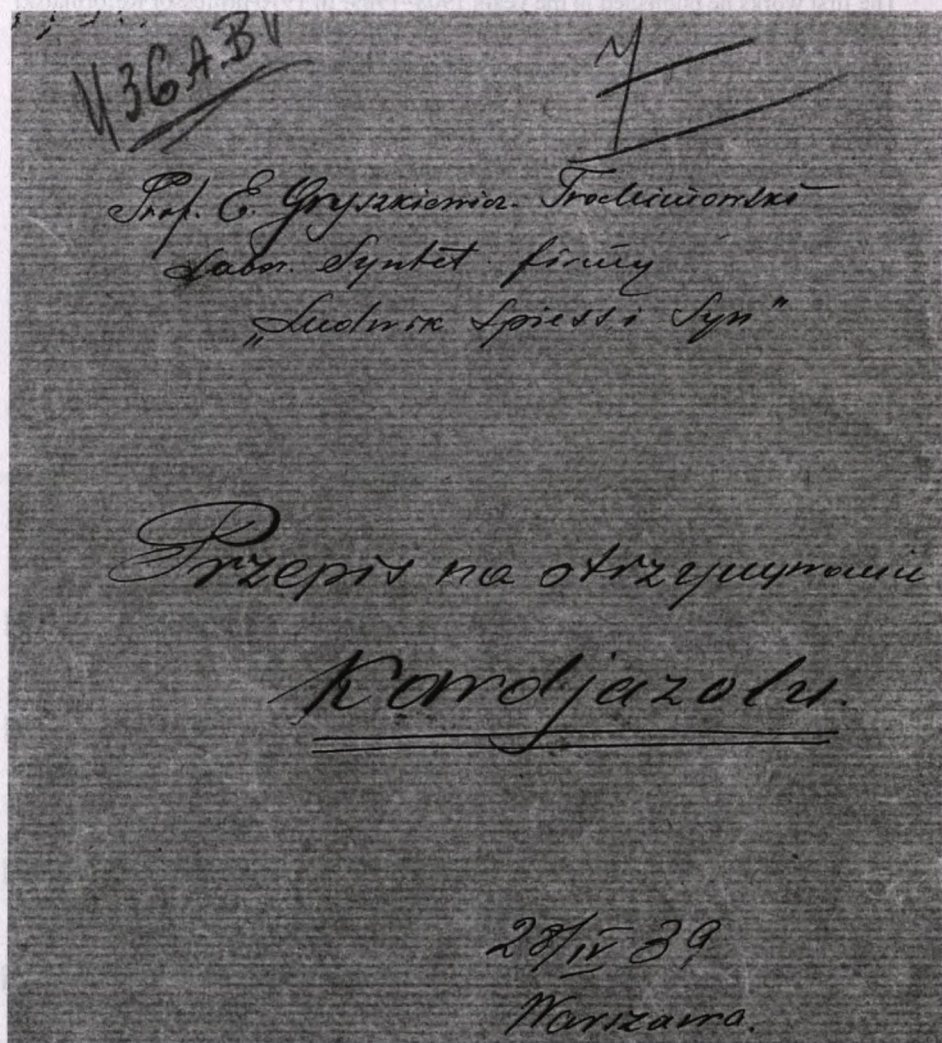 36A.B
Prof. E. Gryszkiewicz-Trochimowski
Labor. Syntet. firmy
„Ludwik Spiess i Syn"
Przepis na otrzymywanie
Kardjazolu.
28/IV 39
Warszawa.